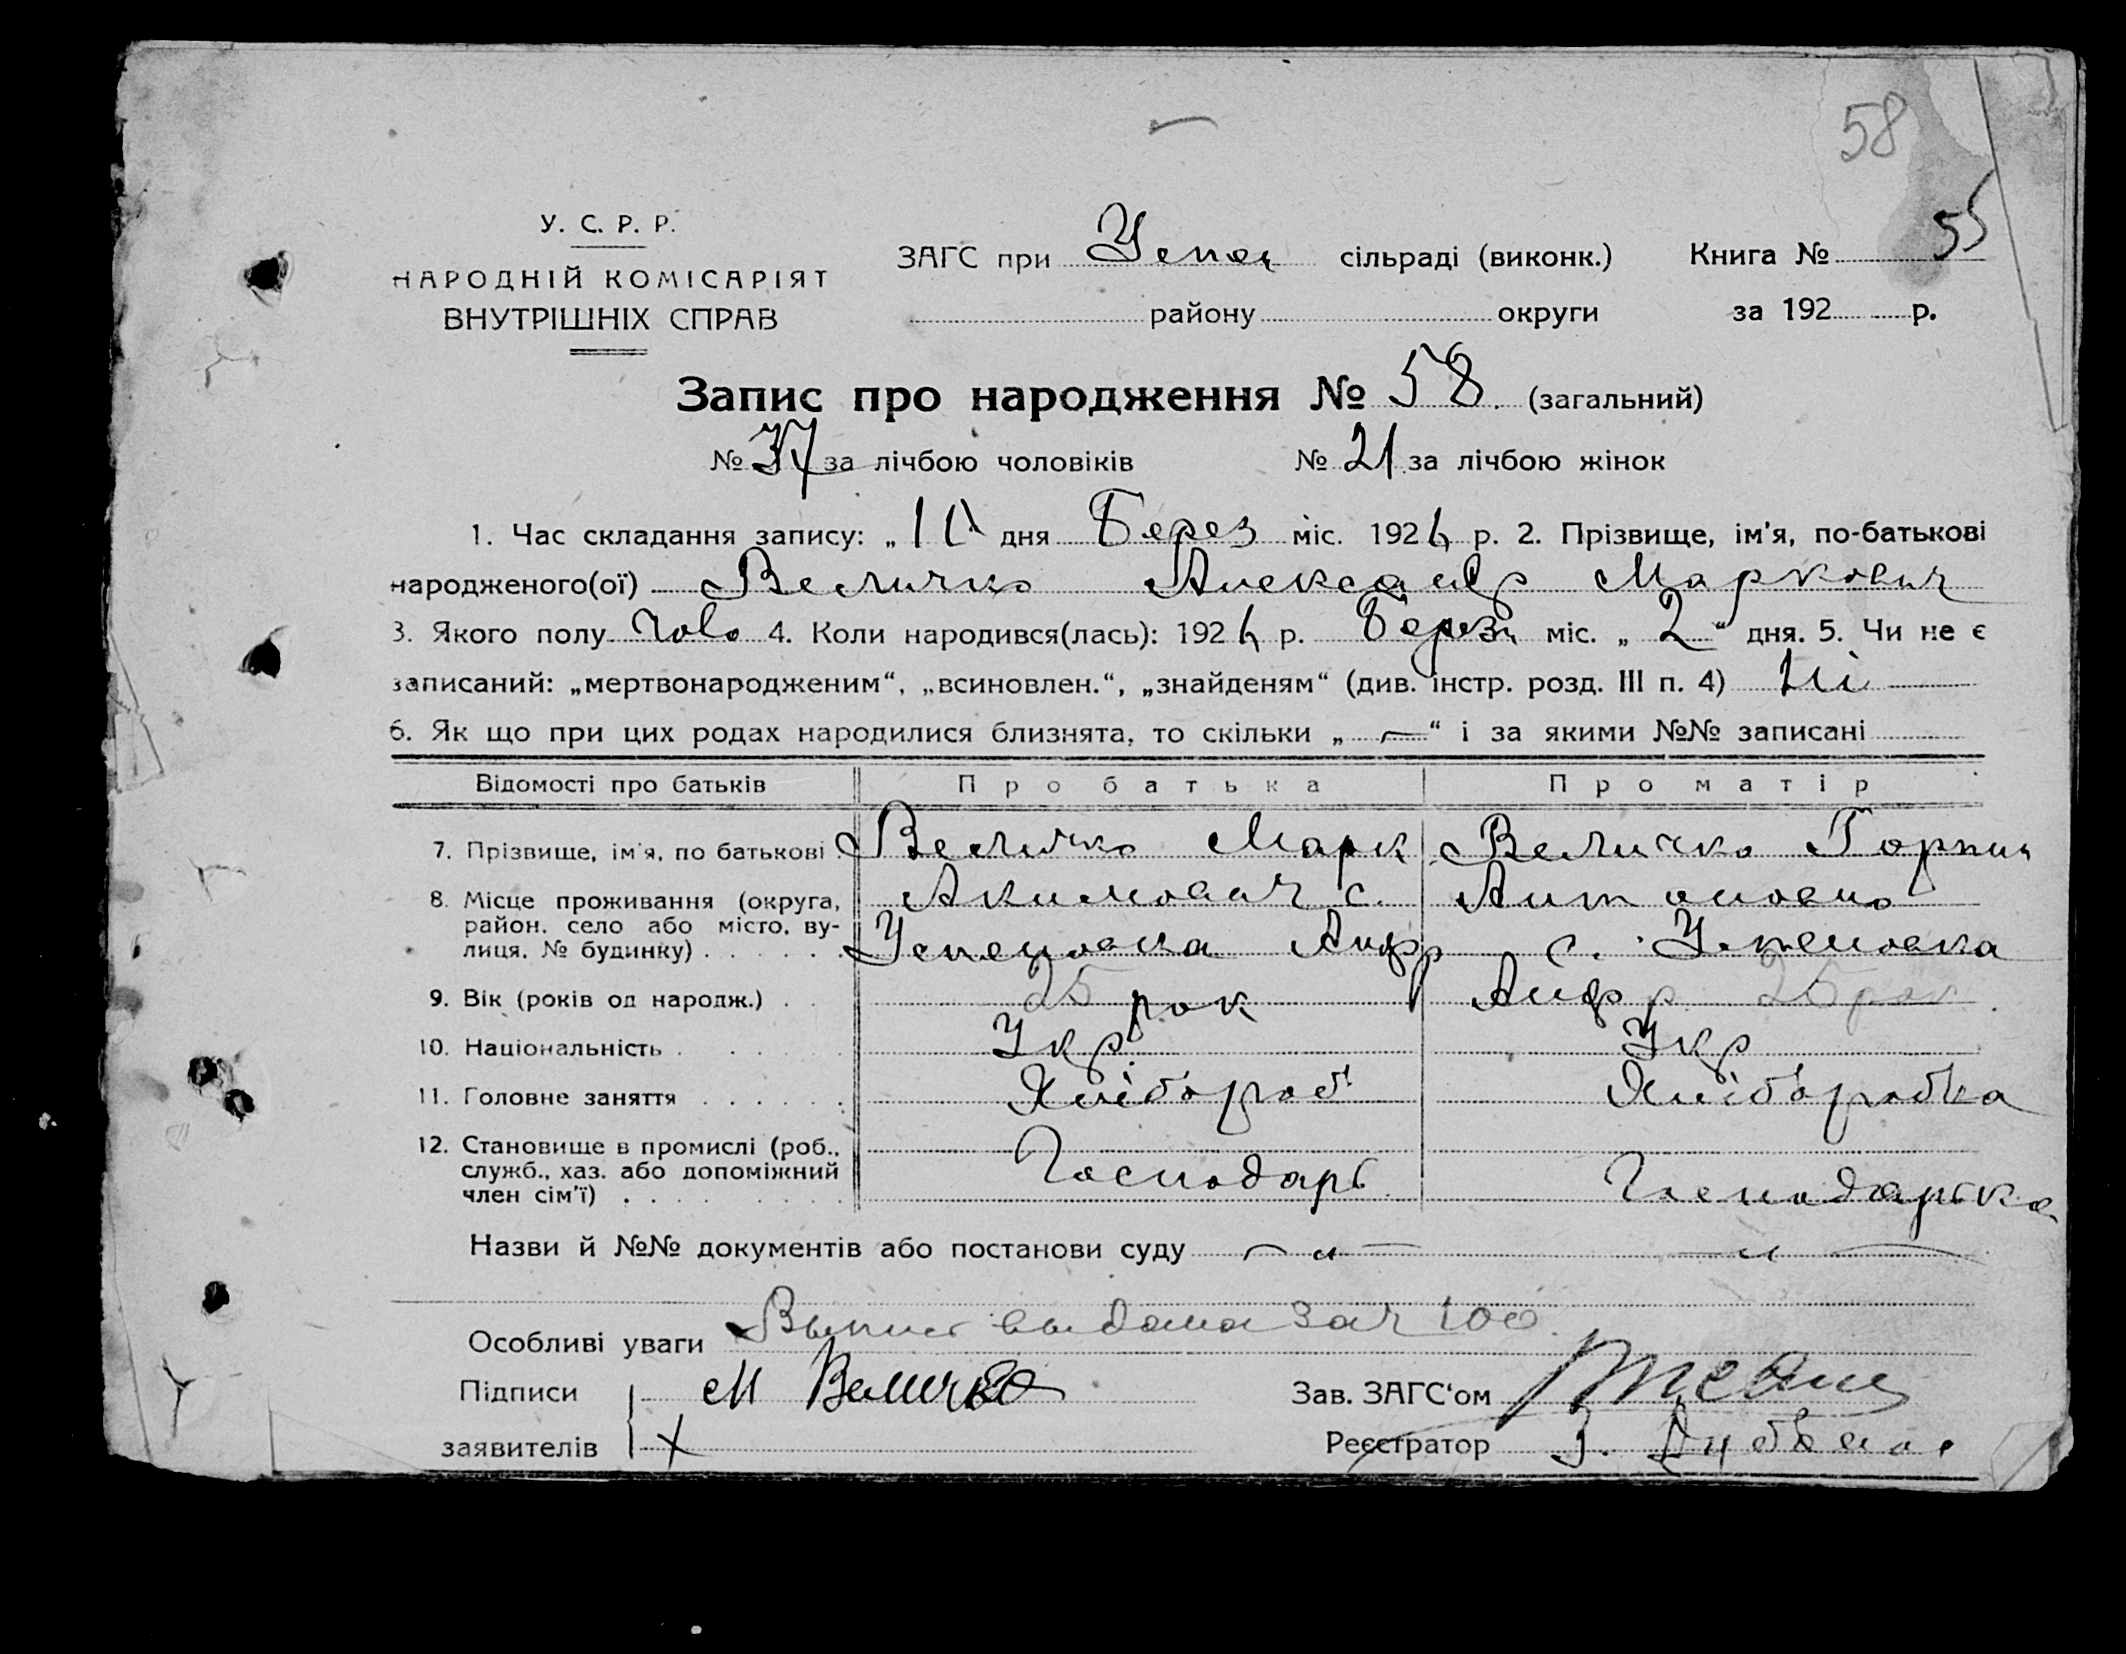 58
У. С. Р. Р.
НАРОДНІЙ КОМІСАРІЯТ
ВНУТРІШНІХ СПРАВ
ЗАГС при Успен сільраді (виконк.) Книга № 55
району округи за 192 р.
Запис про народження № 58. (загальний)
№ 37 за лічбою чоловіків № 21 за лічбою жінок
1. Час складання запису: „10 дня Берез міс. 192 р. 2. Прізвище, ім'я, по-батькові
народженого(ої) Величко Александр Маркович
3. Якого полу Чоло 4. Коли народився(лась): 192 р. Березн міс. „2“ дня. 5. Чи не є
записаний: „мертвонародженим“, „всиновлен.“, „знайденям“ (див. інстр. розд. III п. 4) Ні
6. Як що при цих родах народилися близнята, то скільки „—“ і за якими №№ записані
Відомості про батьків Про батька Про матір
7. Прізвище, ім'я, по батькові . Величко Марк Величко Горпин
8. Місце проживання (округа, Акимович с. Антоновно
район, село або місто, ву-
лиця, № будинку) . . . . . . Успеновка Анфр с. Успеновка
9. Вік (років од народж.) . . 25 рок Анфр 25 рок
10. Національність . . . . . Укр. Укр
11. Головне заняття . . . . . . Хлібороб Хліборобка
12. Становище в промислі (роб.,
служб., хаз. або допоміжний Господарь Господарька
член сім'ї) . . . . . . .
Назви й №№ документів або постанови суду — „ — — „ —
Особливі уваги Выпис выдана за № 100
Підписи М Величко Зав. ЗАГС‘ом
заявителів X Реєстратор З.